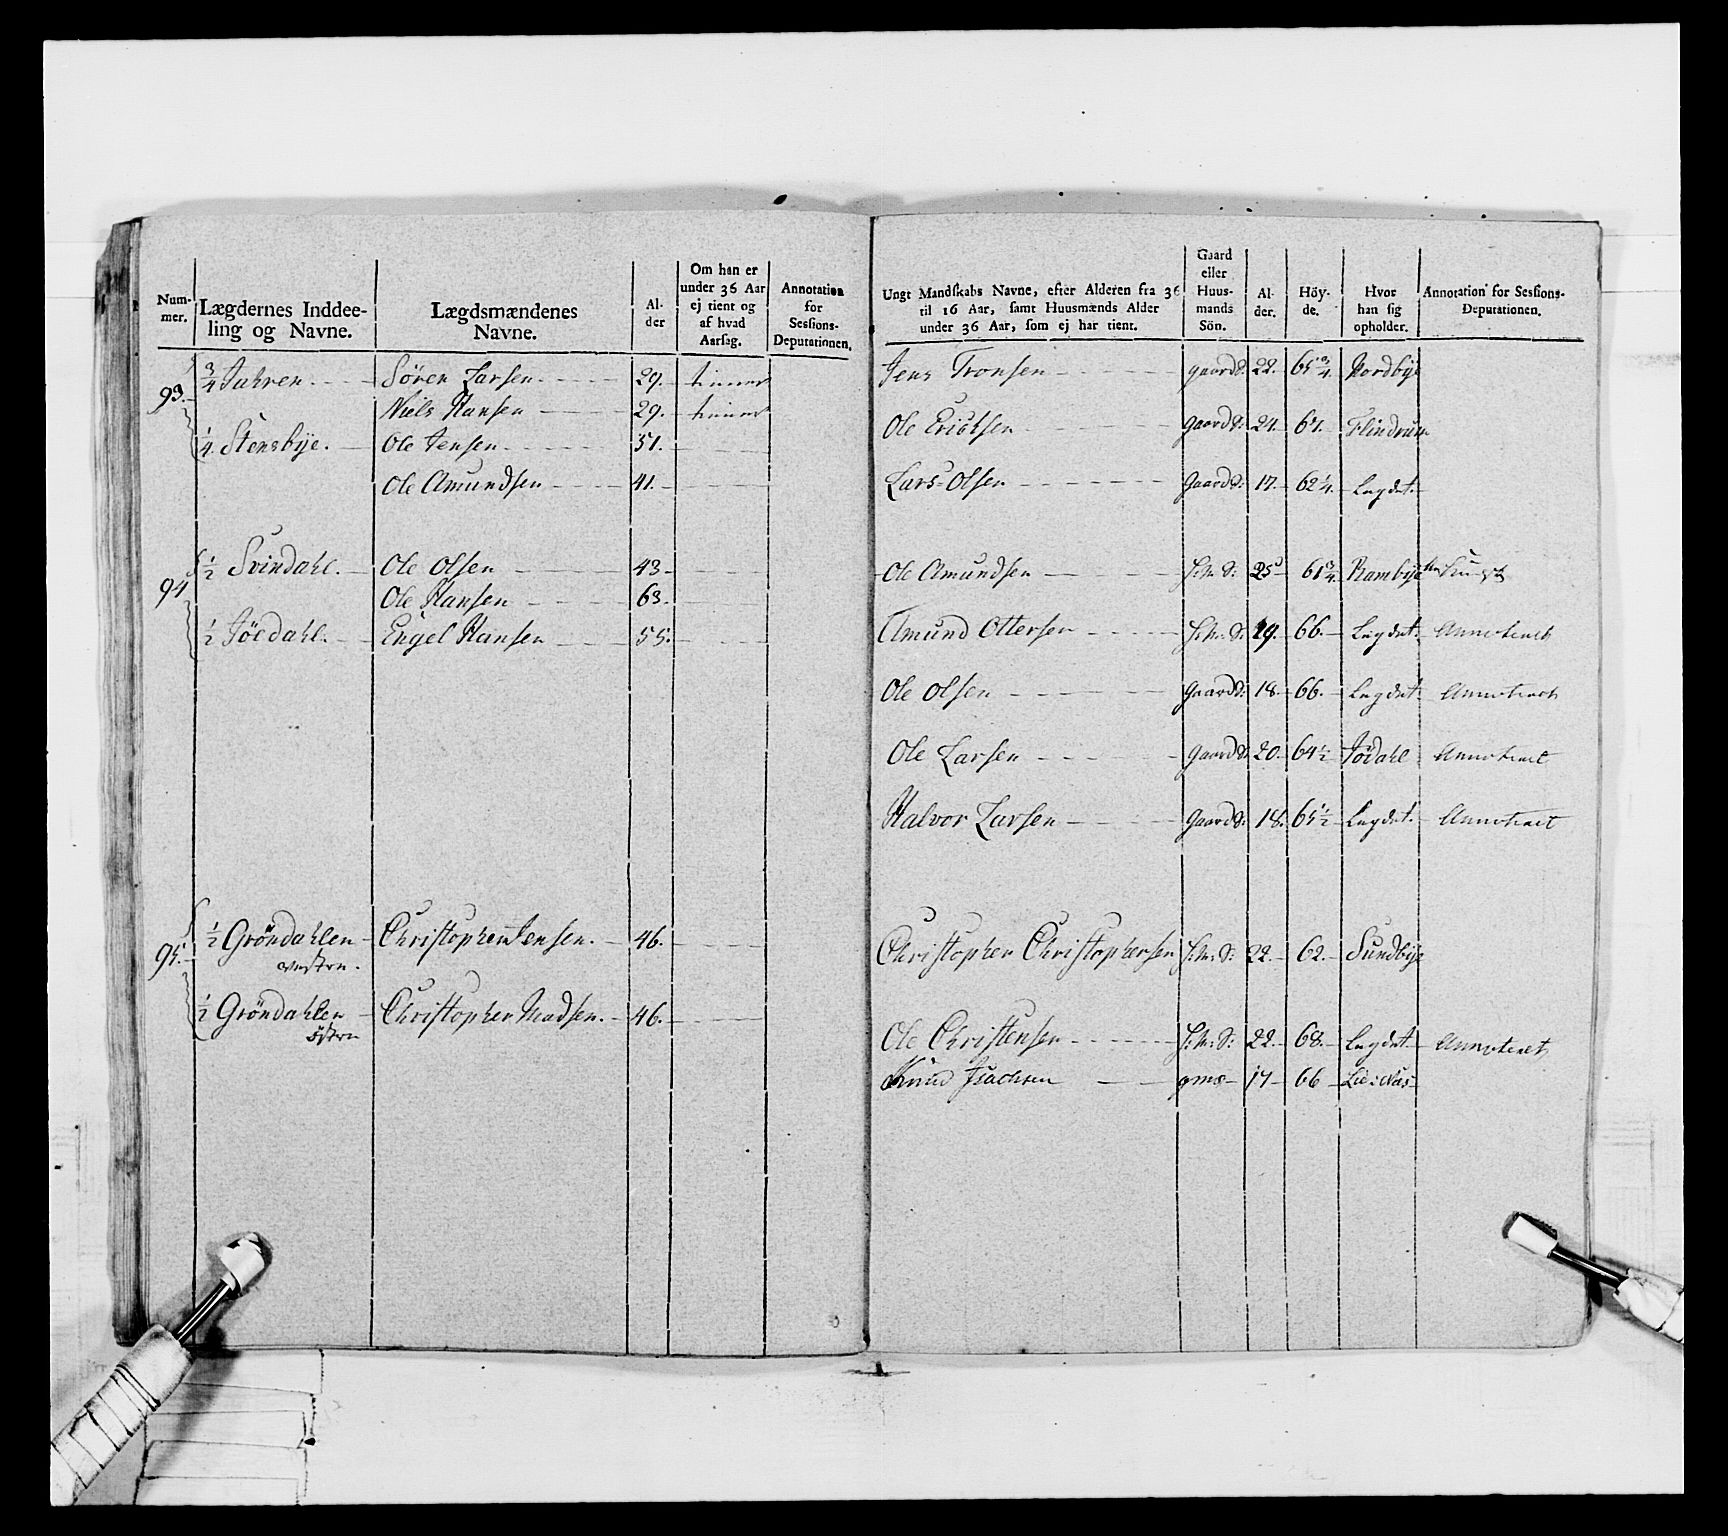 Num-
mer.
Lægdernes Inddee-
ling og Navne.
Lægdsmændenes
Navne.
Al-
der
Om han er
under 36 Aar
ej tient og
af hvad
Aarsag.
Annotation
for
Sessions-
Deputationen.
93. 3/4 Jahren. Sören Larsen. 29. tienner
Niels Hansen 29. tienner
1/4 Stensbÿe. Ole Jensen 51.
Ole Amundsen 41.
94 1/2 Svindahl. Ole Olsen 43
Ole Hansen 63.
1/2 Jöedahl. Engel Hansen 55.
95. 1/2 Gröndahlen Christopher Jensen. 46.
vestre.
1/2 Gröndahlen Christopher Madsen. 46.
östre
Ungt Mandskabs Navne, efter Alderen fra 36
til 16 Aar, samt Huusmænds Alder
under 36 Aar, som ej har tient.
Gaard
eller
Huus-
mands
Sön.
Al-
der.
Höy-
de.
Hvor
han sig
opholder.
Annotation for Sessions-
Deputationen.
Jens Tronsen gaardS. 22. 65 3/4. Nordbÿe
Ole Erichsen GaardS. 24. 61. Flindrum
Lars Olsen GaardS. 17. 62 1/4. Lægdet.
Ole Amundsen H:m: S: 25 61 3/4. Rambÿe
Amund Ottersen H:m: S: 19. 66. Lægdet. Annoteret
Ole Olsen GaardS. 18. 66. Lægdet. Annoteret
Ole Larsen GaardS. 20. 64 1/2 Jödahl Annoteret
Halvor Larsen GaardS. 18. 65 1/2 Lægdet. Annoteret
Christopher Christophersen H:m: S: 22. 62. Sundbÿe
Ole Christensen H:m: S: 22. 68. Lægdet Annoteret
Knud Isachsen 17 66